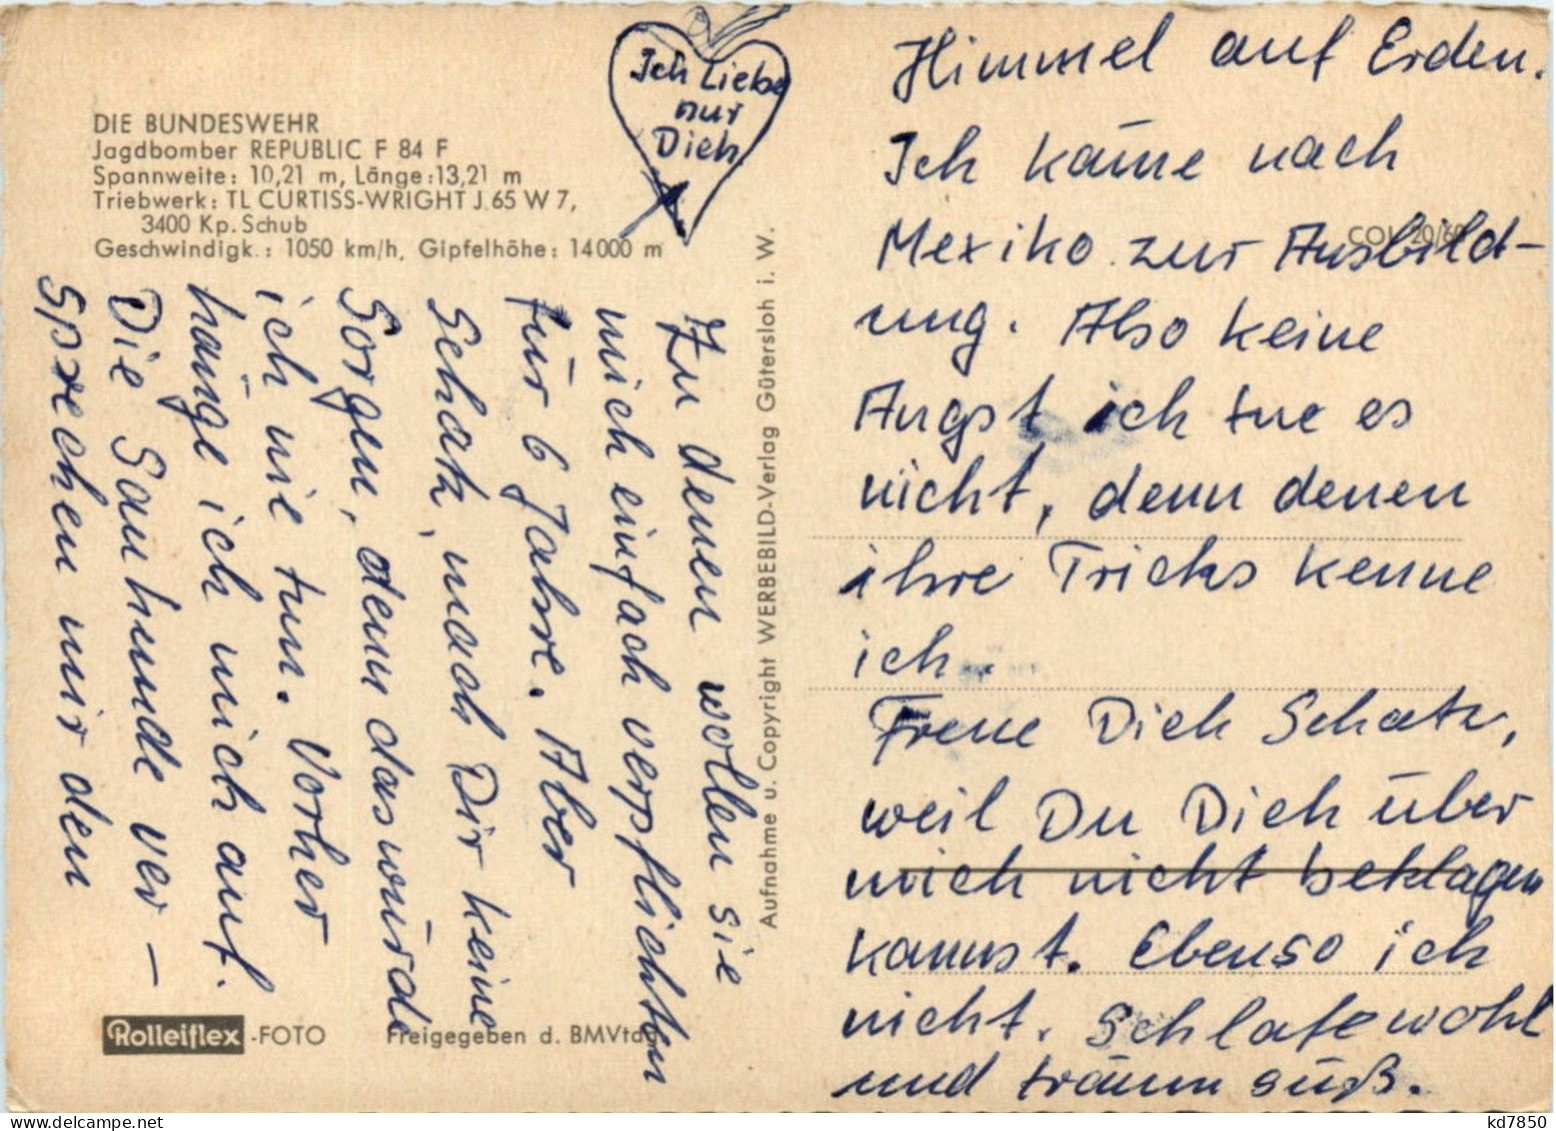 DIE BUNDESWEHR
Jagdbomber REPUBLIC F 84 F
Spannweite: 10,21 m, Länge: 13,21 m
Triebwerk: TL CURTISS-WRIGHT J 65 W 7,
3400 Kp. Schub
Geschwindigk.: 1050 km/h, Gipfelhöhe: 14000 m
Ich Liebe
nur
Dich
Zu denen wollen sie
mich einfach verpflichten
für 6 Jahre. Aber
Schatz, mach Dir keine
Sorgen, denn das würde
ich nie tun. Vorher
hänge ich mich auf.
Die Sauhunde ver-
sprechen mir den
Himmel auf Erden.
Ich käme nach
Mexiko zur Ausbild-
ung. Also keine
Angst ich tue es
nicht, denn denen
ihre Tricks kenne
ich.
Freue Dich Schatz,
weil Du Dich über
mich nicht beklagen
kannst. Ebenso ich
nicht. Schlafe wohl
und träum süß.
Aufnahme u. Copyright WERBEBILD-Verlag Gütersloh i. W.
Rolleiflex-FOTO
Freigegeben d. BMVtdg
kd7850